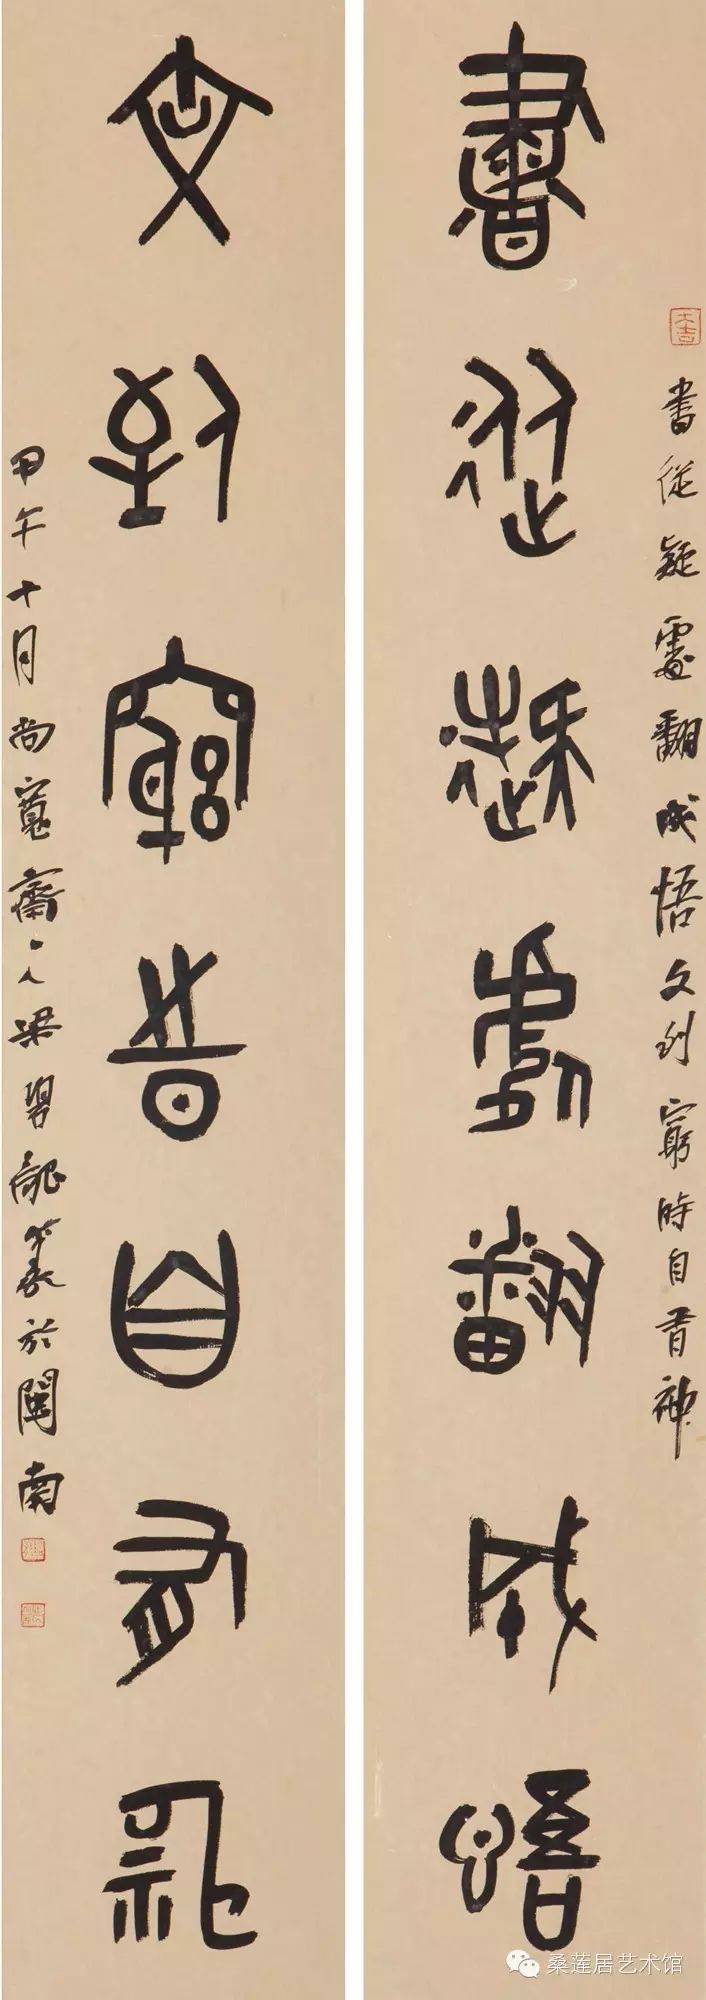 書從疑處翻成悟
文到窮時自有神
大吉
書從疑處翻成悟文到窮時自有神
甲午十月尚寬齋主人梁
於閩南
桑莲居艺术馆